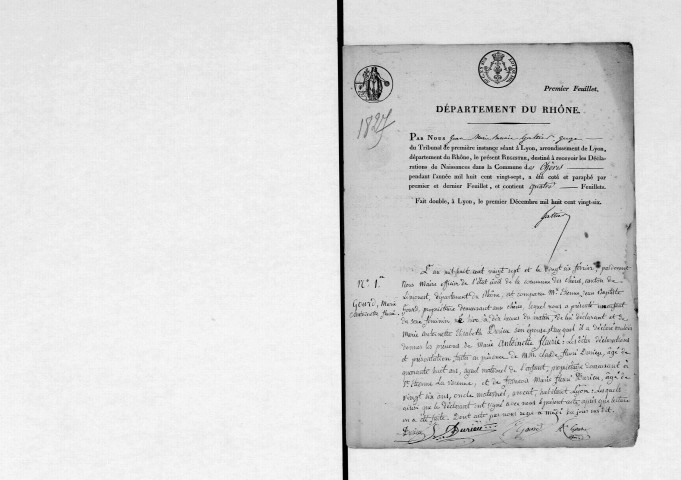 Premier Feuillet.
DÉPARTEMENT DU RHÔNE.
1827
PAR NOUS Jean Marie
du Tribunal de première instance séant à Lyon, arrondissement de Lyon,
département du Rhône, le présent REGISTRE, destiné à recevoir les Décla-
rations de Naissances dans la Commune des Chères
pendant l'année mil huit cent vingt-sept, a été coté et paraphé par
premier et dernier Feuillet, et contient quatre Feuillets.
Fait double, à Lyon, le premier Décembre mil huit cent vingt-six.
N° 1er
Marie
Antoinette fleurie
L'an mil huit cent vingt sept et le vingt six février, pardevant
Nous Maire officier de l'état civil de la commune des Chères, canton de
Limonest, département du Rhône, est comparu Mr. Etienne Jean Baptiste
propriétaire demeurant aux Chères, lequel nous a présenté un enfant
du sexe féminin né hier à dix heures du matin, de lui déclarant et de
Marie Antoinette Elisabeth Durieu son épouse, auquel il a déclaré vouloir
donner les prénoms de Marie Antoinette fleurie: les dites déclarations
et présentation faites en présence de Mr. Claude fleuri Durieu, âgé de
quarante huit ans, ayeul maternel de l'enfant, propriétaire demeurant à
St. Etienne la Varenne, et de françois Marie fleuri Durieu, âgé de
vingt six ans, oncle maternel, avocat, habitant Lyon; lesquels
ainsi que le déclarant ont signé avec nous le présent acte, après que lecture
en a été faite. Dont acte par nous reçu à midi du jour susdit.
Durieu Durieu